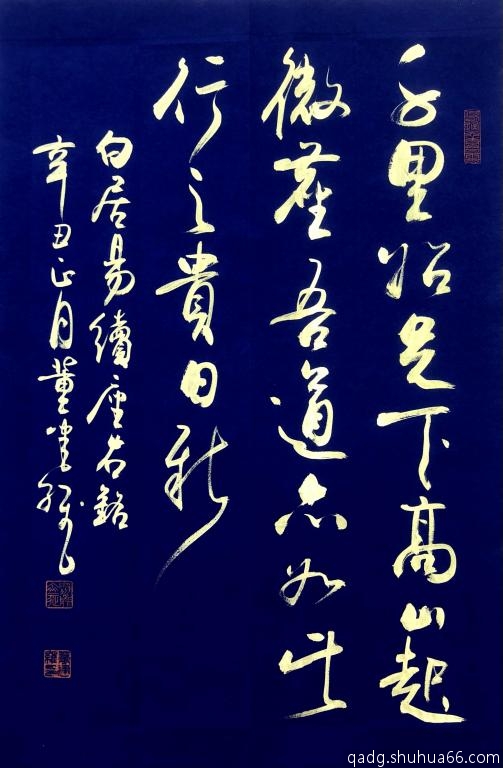 千里始足下高山起
微塵吾道亦如此
行之貴日新
白居易續座右銘
辛丑正月董
qadg.shuhua66.com